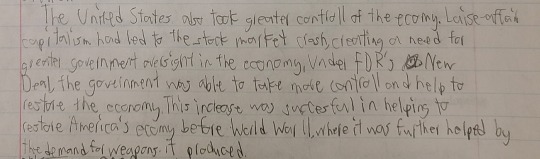 The United States also took greater controll of the ecomy. Laise-affair
capitalism had led to the stock market crash, creating a need for
greater government oversight in the economy. Under FDR's New
Deal the government was able to take more controll and help to
restore the economy. This increase was succesful in helping to
restore America's ecomy before World War II, where it was further helped by
the demand for weapons it produced.